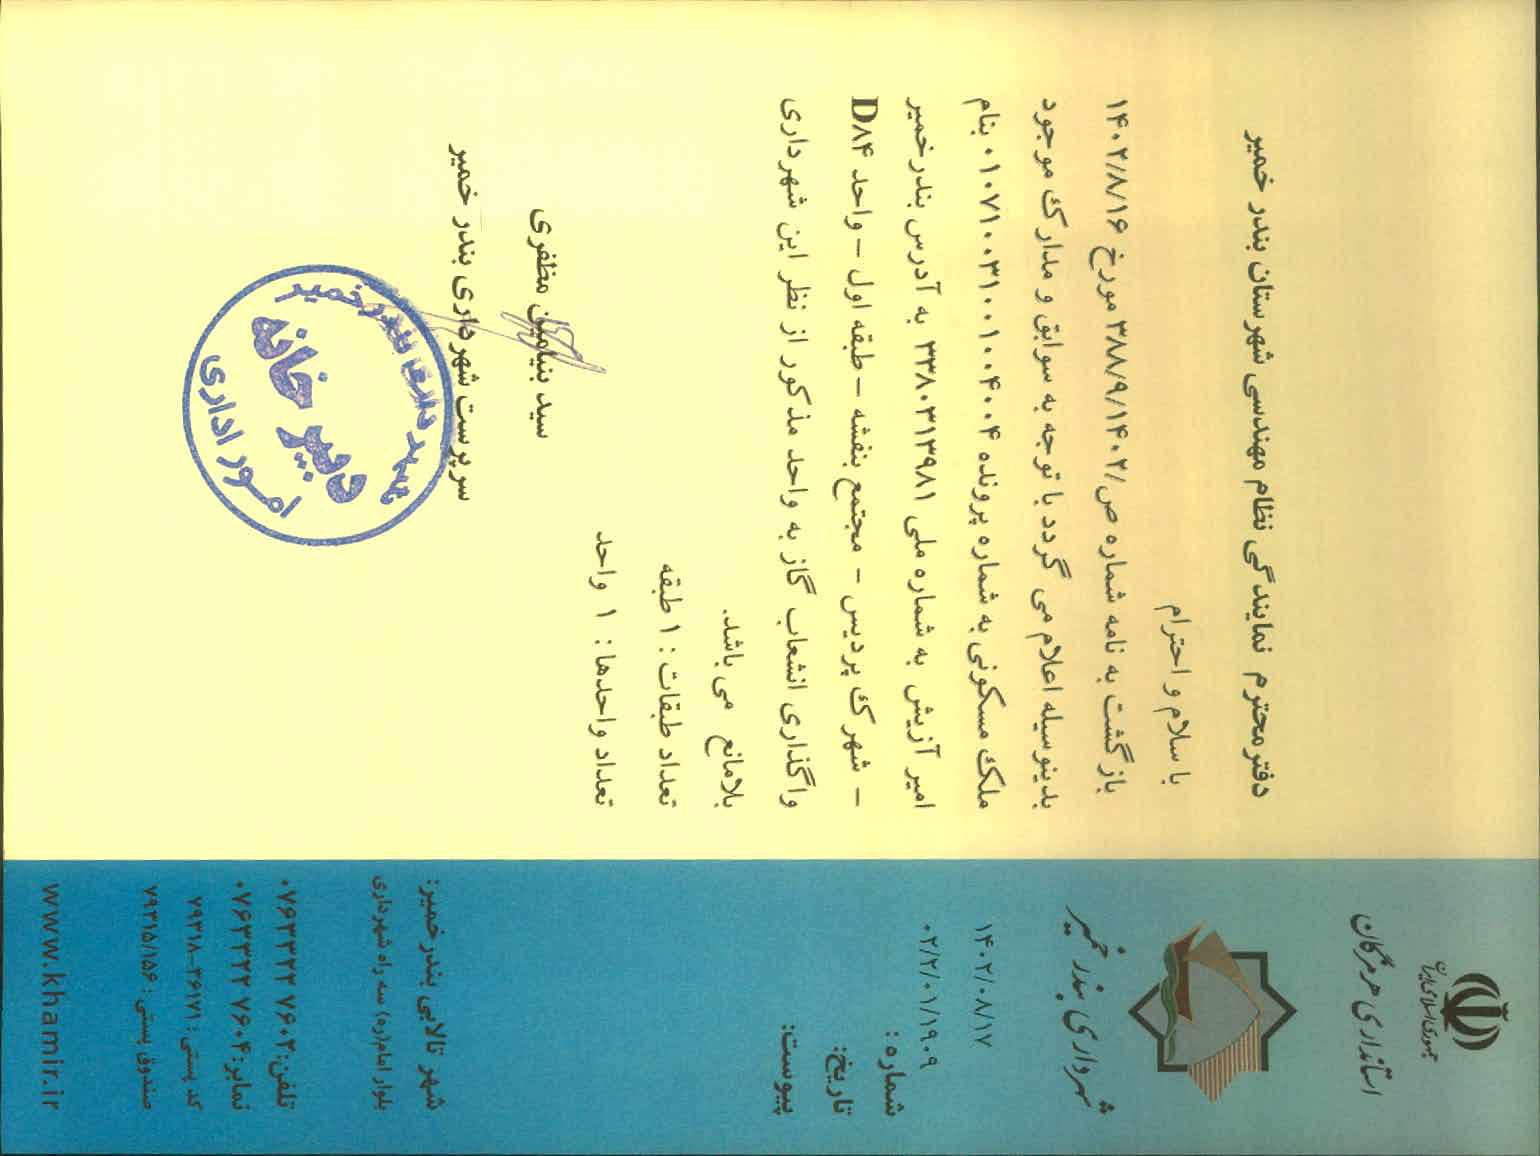 جمهوری اسلامی ایران
استانداری هرمزگان
شهرداری بندر خمیر
۱۴۰۲/۰۸/۱۷
۰۲/۲/۰۱/۱۹۰۹
شماره:
تاریخ:
پیوست:
دفتر محترم نمایندگی نظام مهندسی شهرستان بندر خمیر
با سلام و احترام
بازگشت به نامه شماره ص/۳۸۸/۹/۱۴۰۲ مورخ ۱۴۰۲/۸/۱۶
بدینوسیله اعلام می گردد با توجه به سوابق و مدارک موجود
ملک مسکونی به شماره پرونده ۰۱۰۷۱۰۰۳۱۰۰۱۰۰۴۰۰۴ بنام
امیر آزیش به شماره ملی ۳۳۸۰۳۱۳۹۸۱ به آدرس بندرخمیر
– شهرک پردیس – مجتمع بنفشه – طبقه اول – واحد D۸۴
واگذاری انشعاب گاز به واحد مذکور از نظر این شهرداری
بلامانع می باشد.
تعداد طبقات : ۱ طبقه
تعداد واحدها : ۱ واحد
سید بنیامین مظفری
سرپرست شهرداری بندر خمیر
شهرداری بندر خمیر
دبیر خانه
امور اداری
شهر تالابی بندرخمیر:
بلوار امام(ره) سه راه شهرداری
تلفن: ۰۷۶۳۳۲۲ ۷۶۰۲
نمابر: ۰۷۶۳۳۲۲ ۷۶۰۴
کد پستی: ۳۶۱۷۱–۷۹۳۱۸
صندوق پستی : ۷۹۳۱۵/۱۵۶
www.khamir.ir